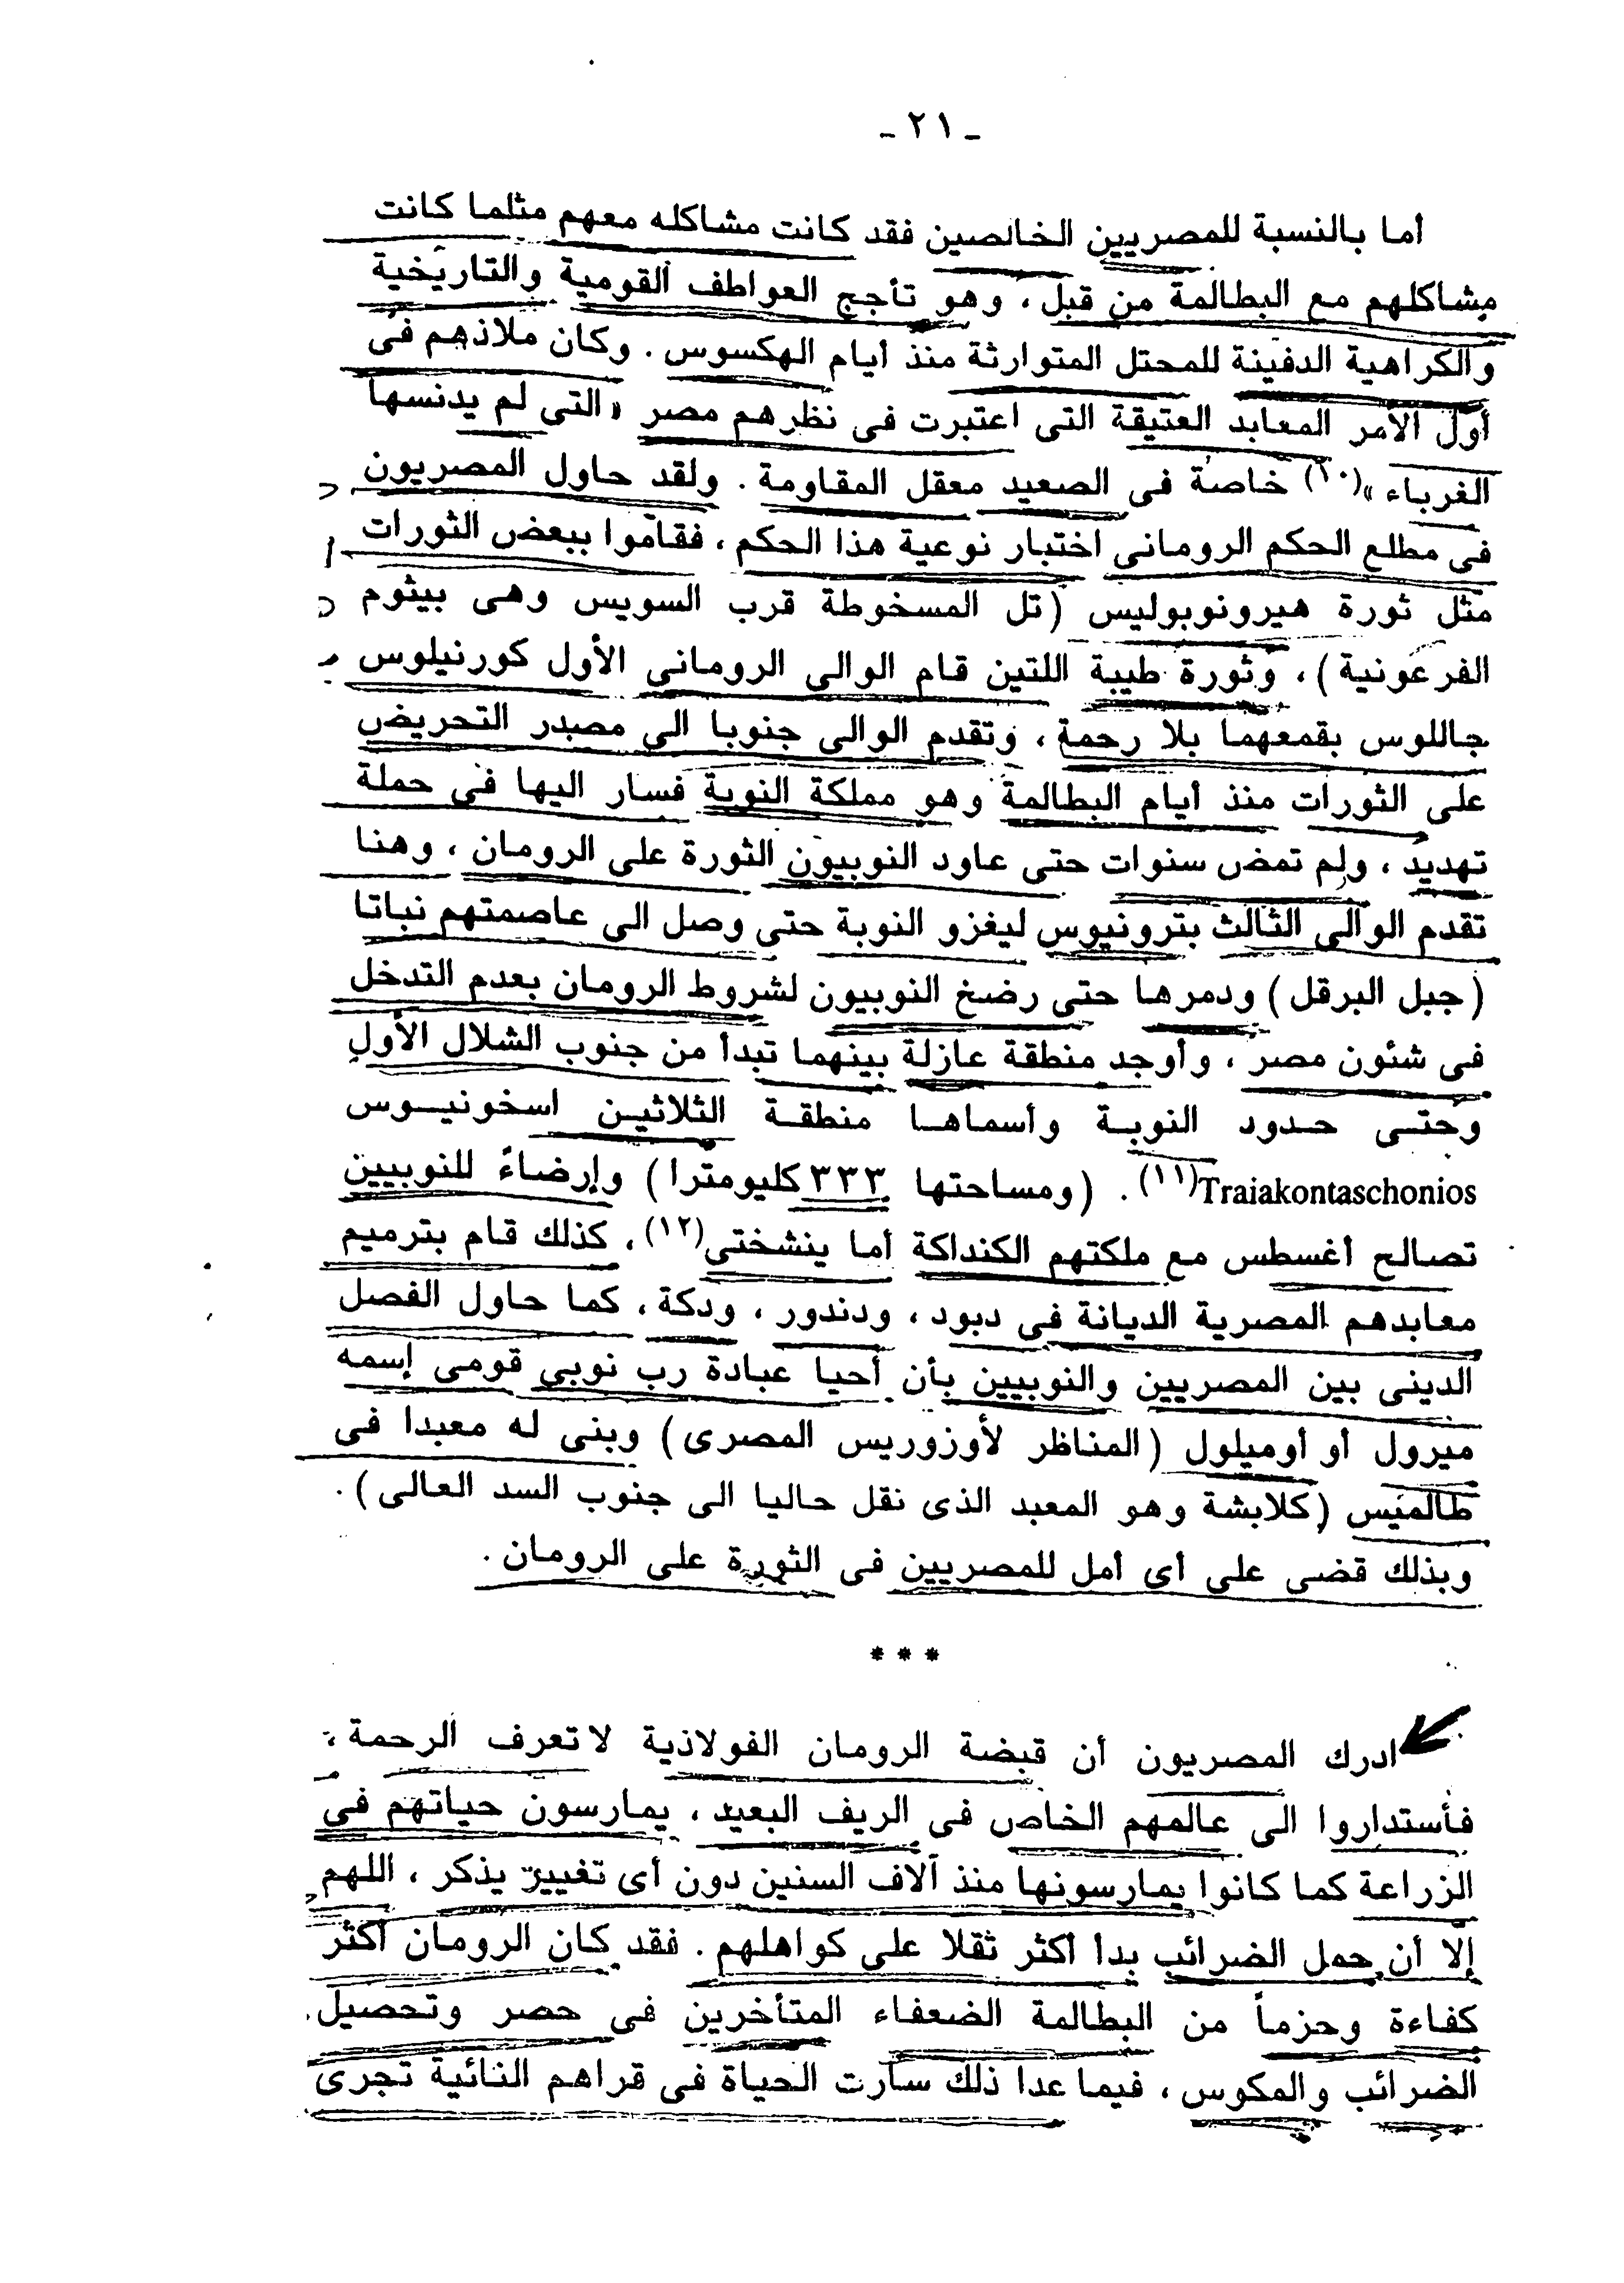 - ٢١ -
أما بالنسبة للمصريين الخالصين فقد كانت مشاكله معهم مثلما كانت
مشاكلهم مع البطالمة من قبل ، وهو تأجج العواطف القومية والتاريخية
والكراهية الدفينة للمحتل المتوارثة منذ أيام الهكسوس . وكان ملاذهم فى
أول الأمر المعابد العتيقة التى اعتبرت فى نظرهم مصر « التى لم يدنسها
الغرباء »(١٠) خاصة فى الصعيد معقل المقاومة . ولقد حاول المصريون
فى مطلع الحكم الرومانى اختبار نوعية هذا الحكم ، فقاموا ببعض الثورات
مثل ثورة هيرونوبوليس (تل المسخوطة قرب السويس وهى بيثوم
الفرعونية) ، وثورة طيبة اللتين قام الوالى الرومانى الأول كورنيلوس
جاللوس بقمعهما بلا رحمة ، وتقدم الوالى جنوبا الى مصدر التحريض
على الثورات منذ أيام البطالمة وهو مملكة النوبة فسار اليها فى حملة
تهديد ، ولم تمض سنوات حتى عاود النوبيون الثورة على الرومان ، وهنا
تقدم الوالى الثالث بترونيوس ليغزو النوبة حتى وصل الى عاصمتهم نباتا
(جبل البرقل) ودمرها حتى رضخ النوبيون لشروط الرومان بعدم التدخل
فى شئون مصر ، وأوجد منطقة عازلة بينهما تبدأ من جنوب الشلال الأول
وحتى حدود النوبة وأسماها منطقة الثلاثين اسخونيوس
Traiakontaschonios(١١) . (ومساحتها ٣٣٣ كليومترا) وإرضاءً للنوبيين
تصالح أغسطس مع ملكتهم الكنداكة أما ينشختى(١٢) ، كذلك قام بترميم
معابدهم المصرية الديانة فى دبود ، ودندور ، ودكة ، كما حاول الفصل
الدينى بين المصريين والنوبيين بأن أحيا عبادة رب نوبى قومى إسمه
ميرول أو أوميلول (المناظر لأوزوريس المصرى) وبنى له معبدا فى
طالميس (كلابشة وهو المعبد الذى نقل حاليا الى جنوب السد العالى) .
وبذلك قضى على أى أمل للمصريين فى الثورة على الرومان .
* * *
ادرك المصريون أن قبضة الرومان الفولاذية لا تعرف الرحمة ،
فأستداروا الى عالمهم الخاص فى الريف البعيد ، يمارسون حياتهم فى
الزراعة كما كانوا يمارسونها منذ آلاف السنين دون أى تغيير يذكر ، اللهم
إلّا أن حمل الضرائب بدأ أكثر ثقلا على كواهلهم . فقد كان الرومان أكثر
كفاءة وحزماً من البطالمة الضعفاء المتأخرين فى حصر وتحصيل
الضرائب والمكوس ، فيما عدا ذلك سارت الحياة فى قراهم النائية تجرى